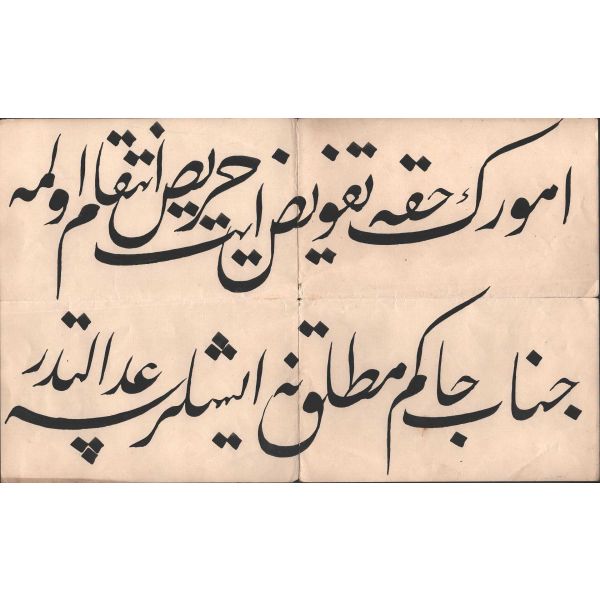 امورك حقه تفويض ايت حريص انتقام اولمه
جناب حاكم مطلق نه ايشلرسه عدالتدر